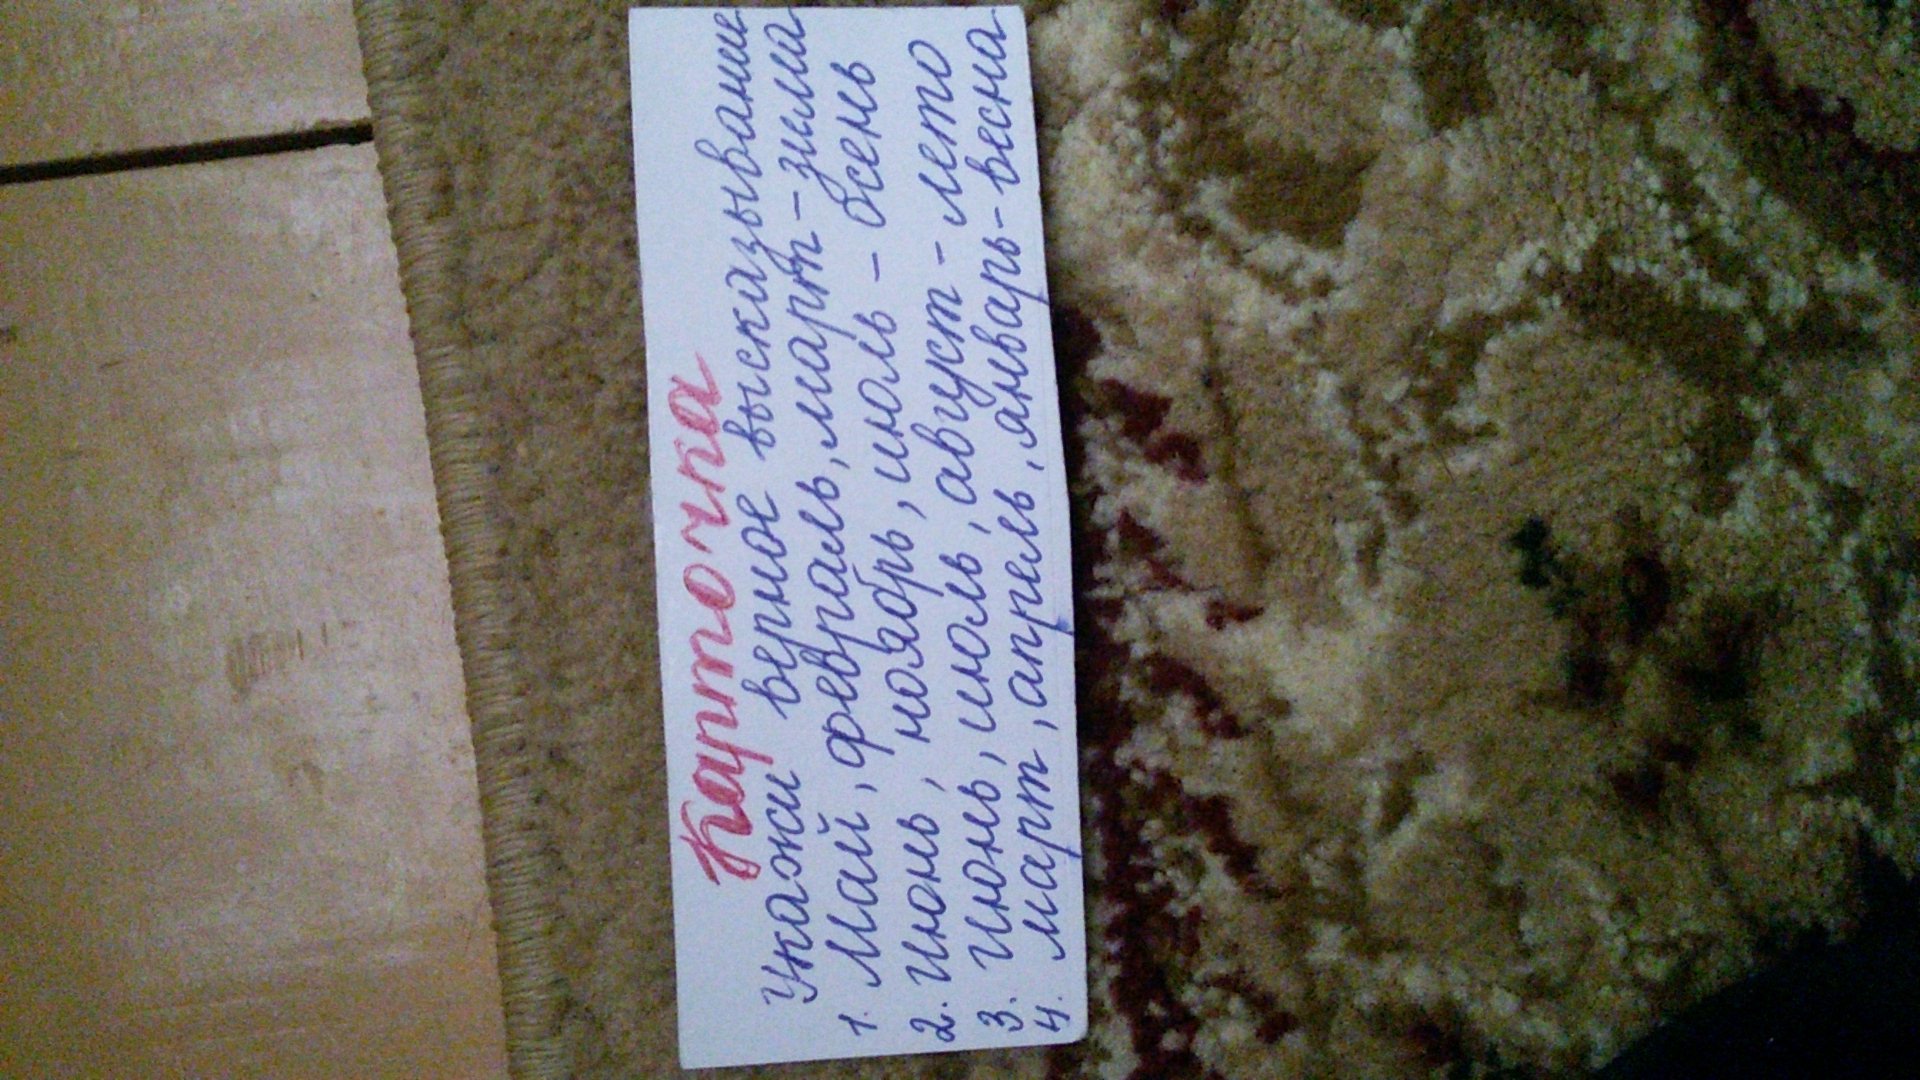 Карточка
Укажи верное высказывание
1. Май, февраль, март - зима
2. Июнь, ноябрь, июль - осень
3. Июнь, июль, август - лето
4. март, апрель, январь - весна